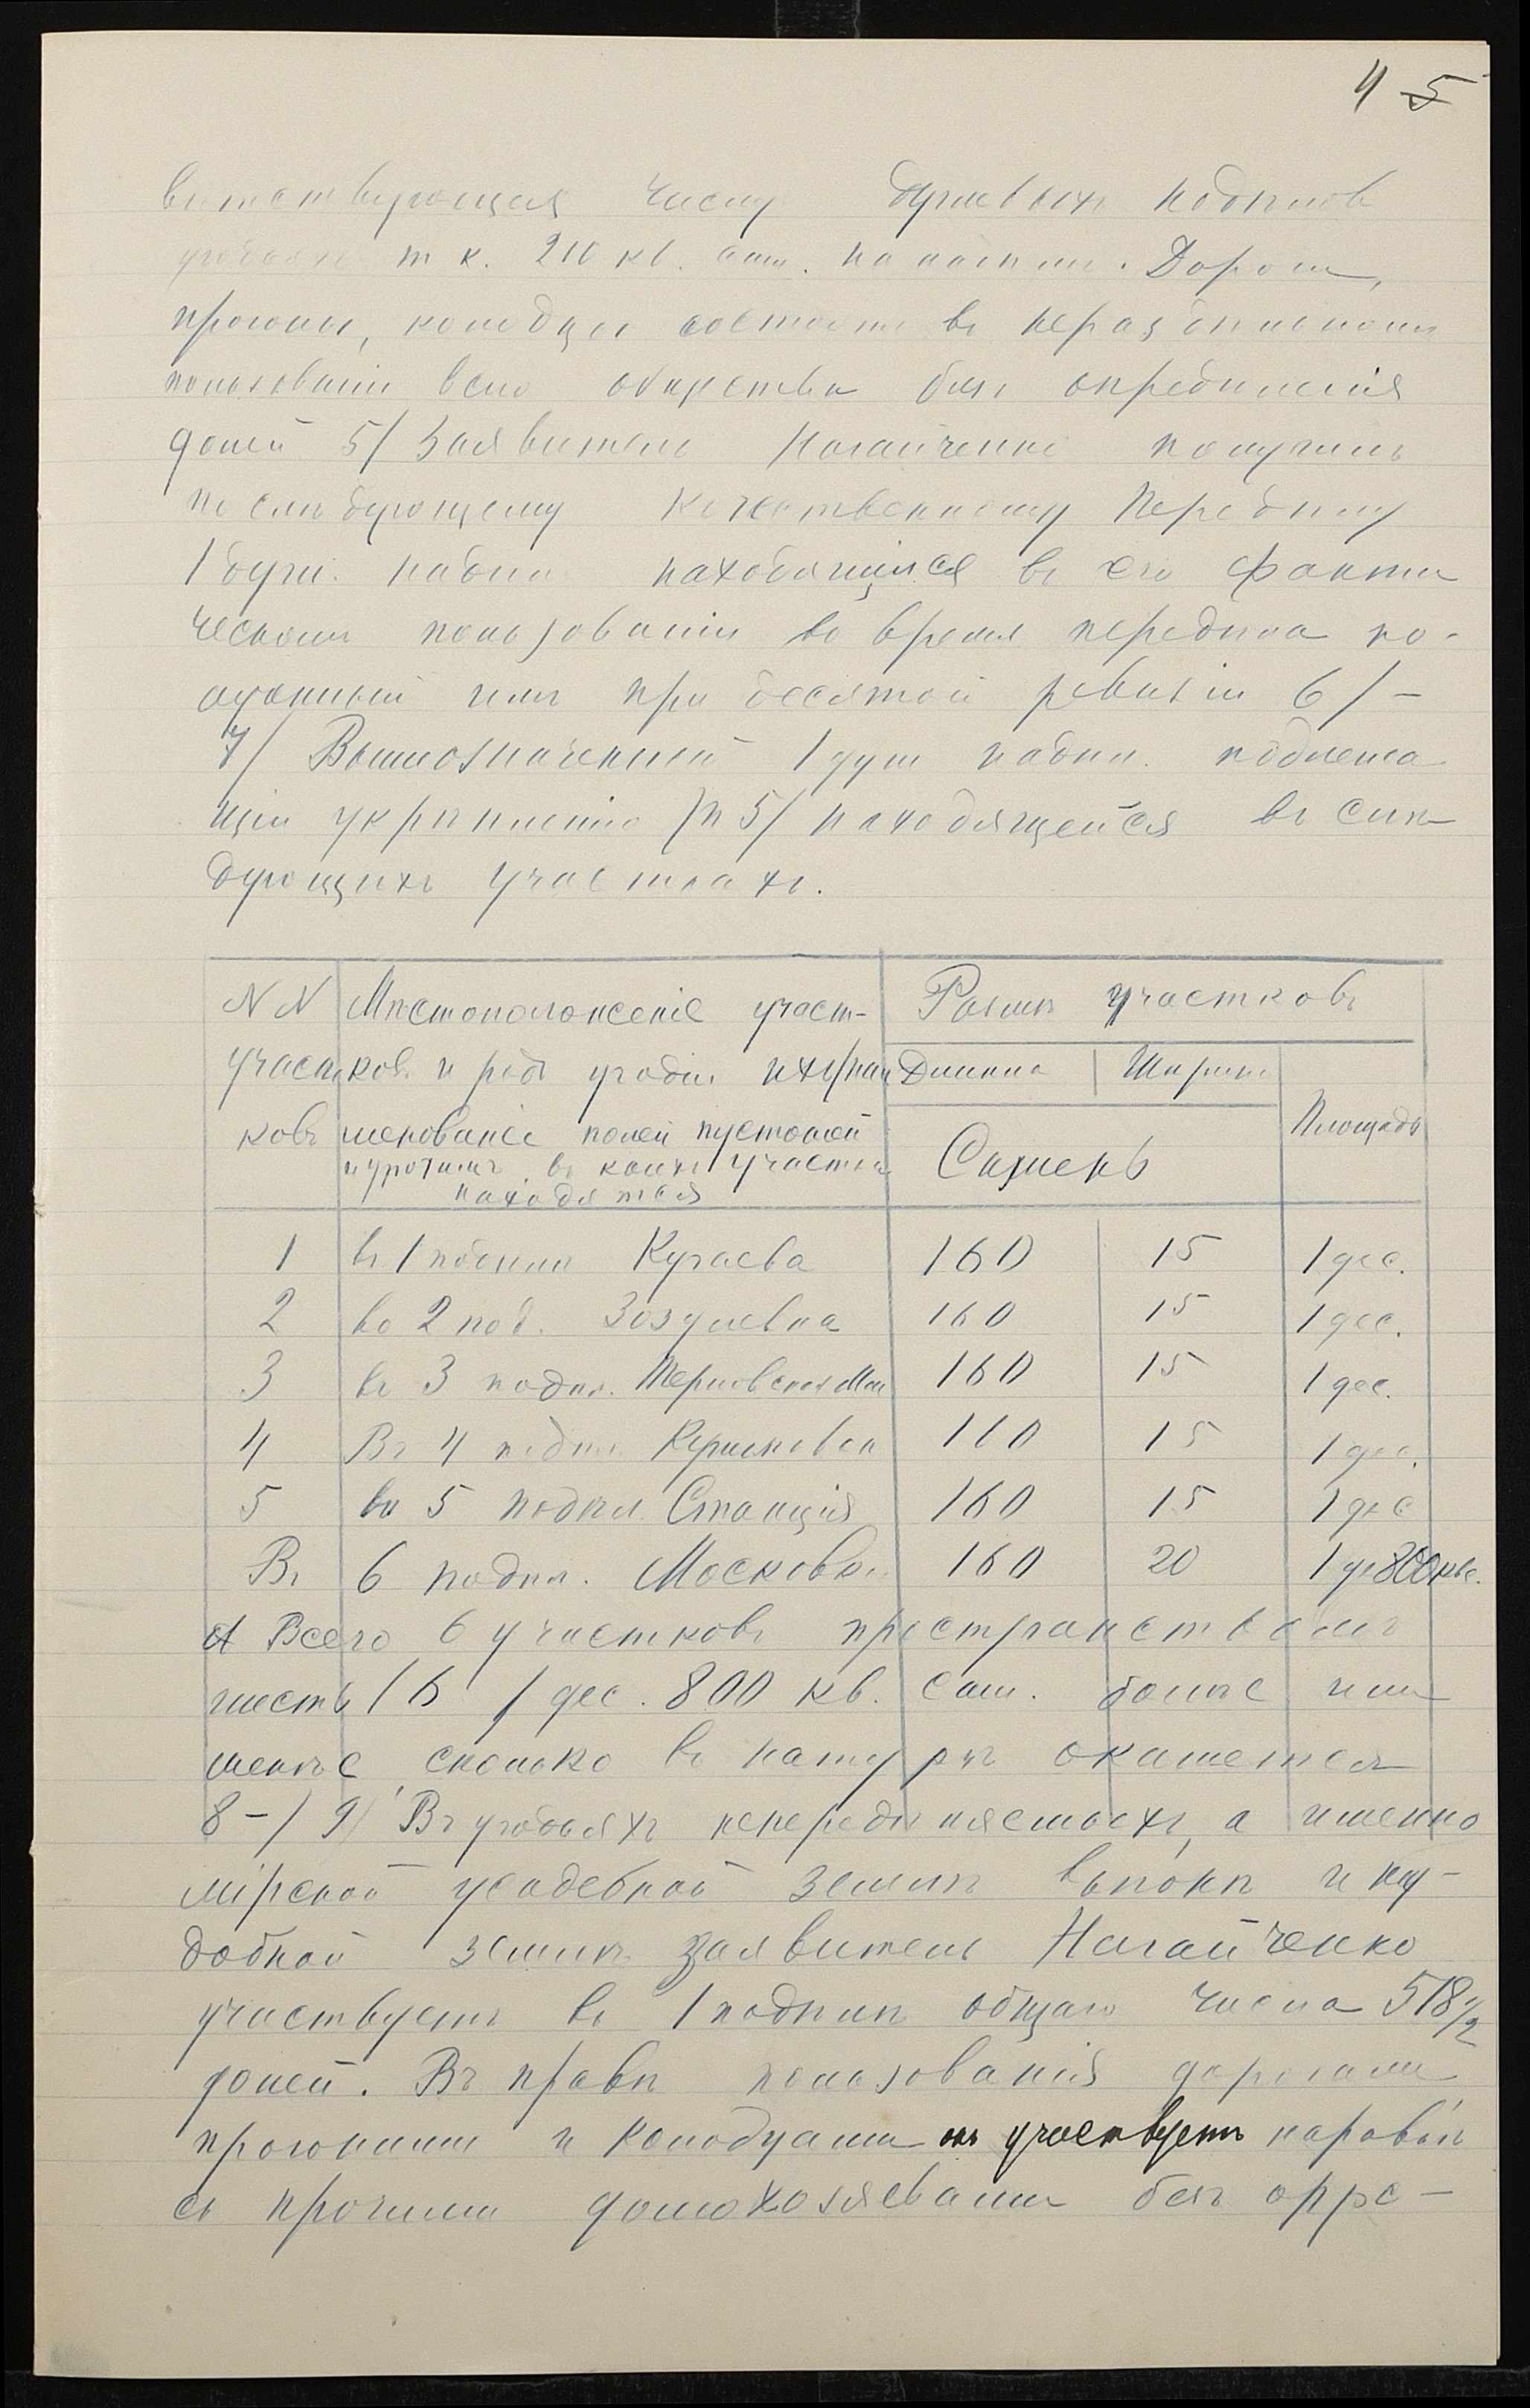 4 5
вѣтствующая числу душевыхъ надѣловъ
т к. 210 кв. саж. на надѣлъ. Дороги,
прогоны, колодцы состоятъ въ нераздѣльномъ
пользованіи всего общества безъ опредѣленія
долей 5/ Заявитель Нагайченко получилъ
по слѣдующему качественному передѣлу
1 душ. надѣлъ находящійся въ его факти
ческомъ пользованіи во время передѣла по-
лученный имъ при десятой ревизіи 6/ –
7/ Вышеозначенный 1 душ надѣл. подлежа
щій укрѣпленію /п 5/ находящейся въ слѣ
дующихъ участкахъ.
NN Мѣстоположеніе участ- Размѣръ участковъ
участ ковъ и родъ угодій ихъ/наи Длинна Ширина
ковъ менованіе полей пустошей Площадь
и урочищъ въ коихъ участки Сажень
находятся
1 въ 1 подѣлѣ Кугаева 160 15 1 дес.
2 во 2 под. 160 15 1 дес.
3 въ 3 подѣл. 160 15 1 дес.
4 Въ 4 подѣл. 160 15 1 дес.
5 въ 5 подѣл. Станція 160 15 1 дес
Въ 6 подѣл. Московка 160 20 1 де 800 кв с.
А Всего 6 участковъ пространствомъ
шесть /6/ дес. 800 кв. саж. болѣе или
менѣе, сколько въ натурѣ окажется
8 – / 9/ Въ угодьяхъ непередѣляемыхъ, а именно
мірской усадебной землѣ выгонѣ и неу-
добной землѣ заявитель Нагайченко
участвуетъ въ 1 подѣлѣ общаго числа 518 1/2
долей. Въ правѣ пользованія дорогами
прогонами и колодцами онъ участвуетъ наравнѣ
съ прочими домохозяевами безъ опре –